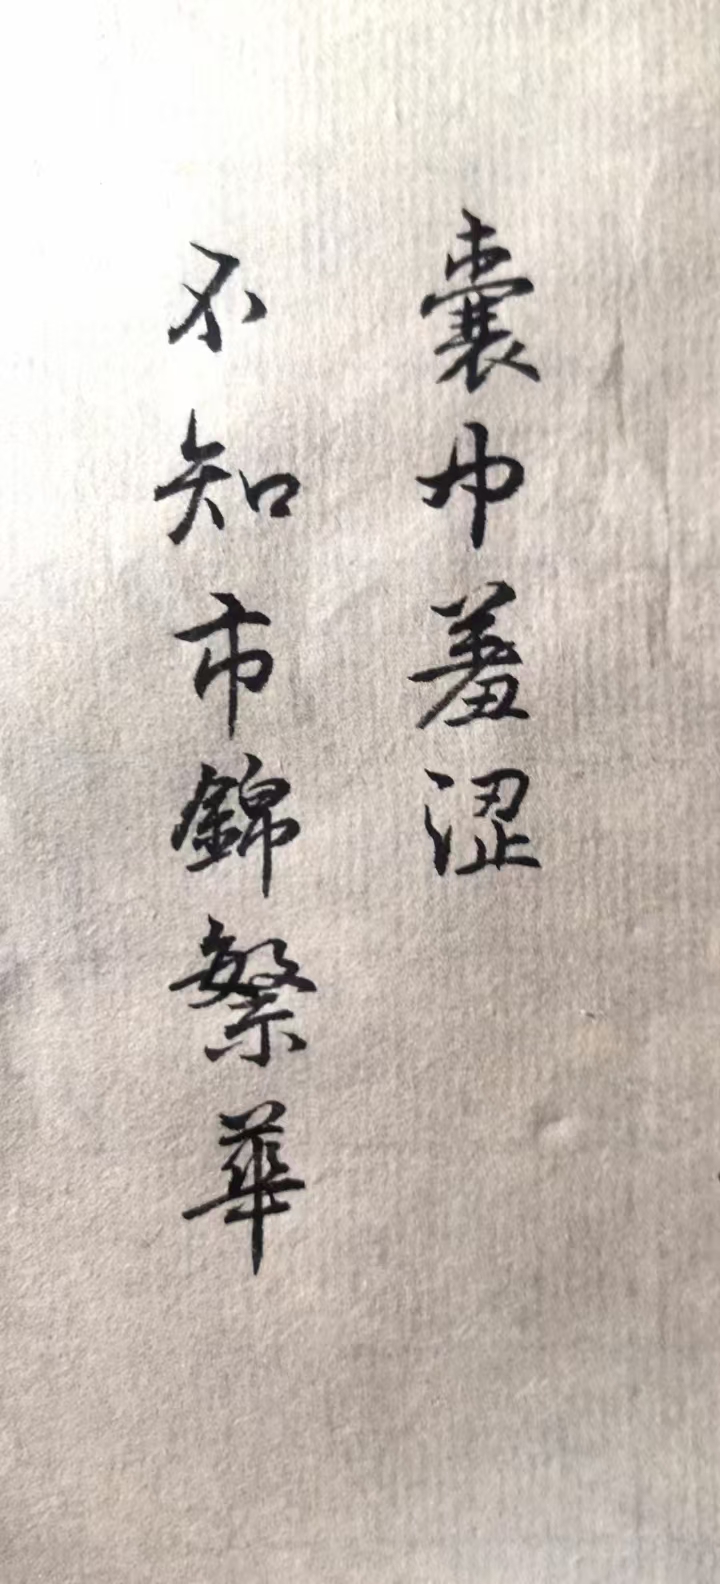 囊巾羞涩
不知市錦繁華